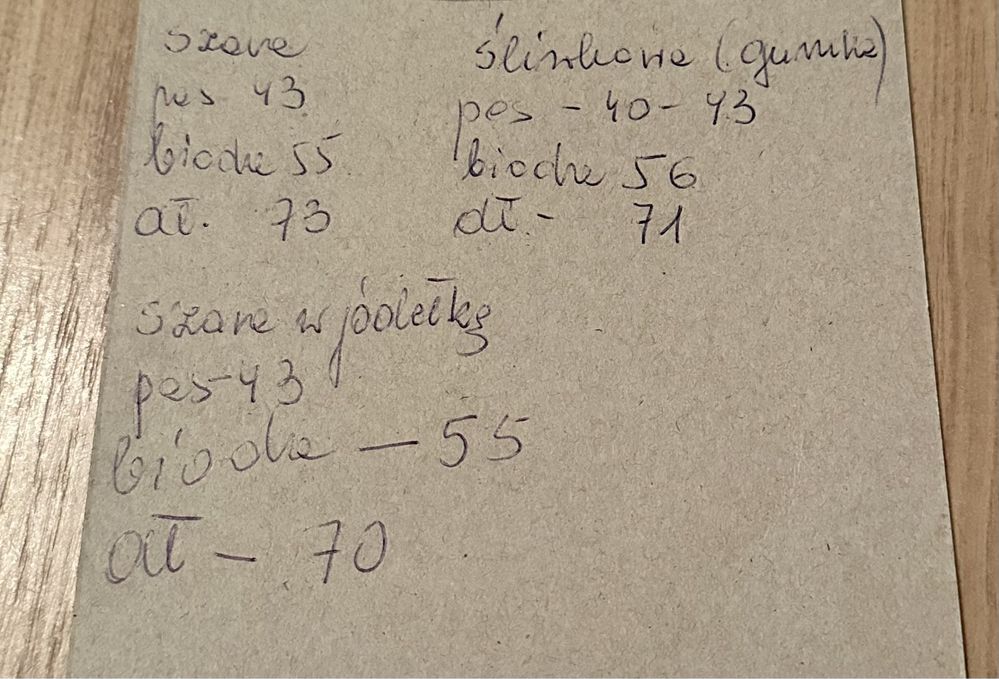 szare
pas 43
biodra 55
dł. 73
śliwkowa (gumka)
pas - 40 - 43
biodra 56
dł - 71
szare w jodełkę
pas - 43
biodra — 55
dł — 70